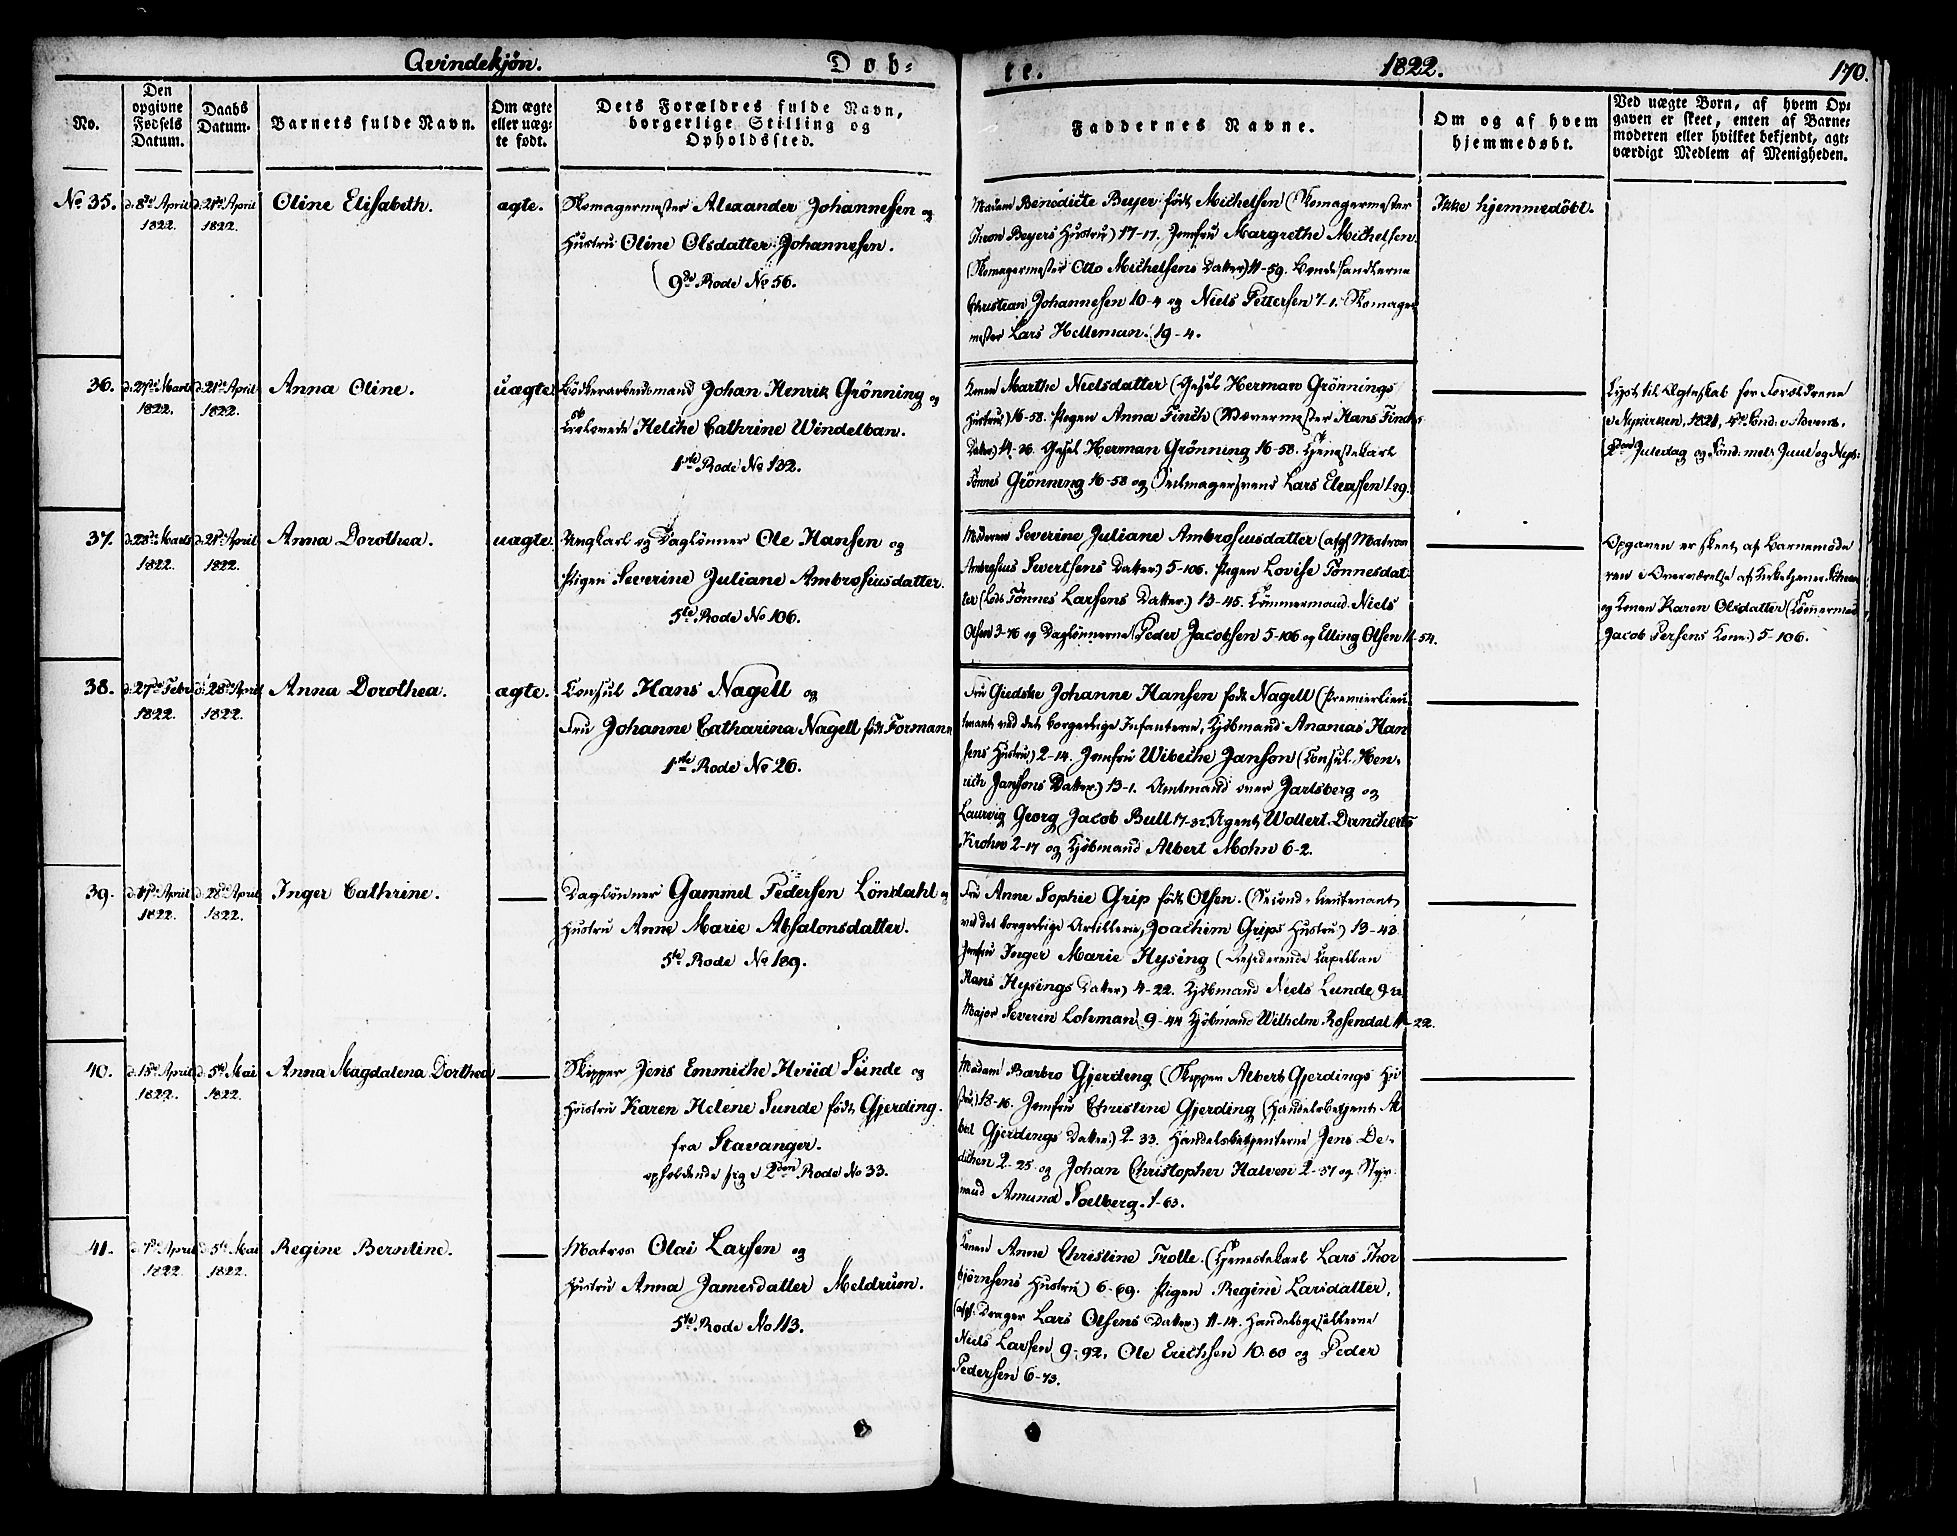 Qvindekjøn.
Døb-
te.
1822.
170.
No.
Den
opgivne
Fødsels
Datum.
Daabs
Datum.
Barnets fulde Navn.
Om ægte
eller uæg-
te født.
Dets Forældres fulde Navn,
borgerlige Stilling og
Opholdssted.
Faddernes Navne.
Om og af hvem
hjemmedøbt.
Ved uægte Børn, af hvem Op-
gaven er skeet, enten af Barne-
moderen eller hvilket bekjendt, agt-
værdigt Medlem af Menigheden.
No 35.
d. 8de April
1822.
d. 21de April
1822.
Oline Elisabeth.
ægte.
Skomagermester Alexander Johannesen og
Hustru Oline Olsdatter Johannesen.
9de Rode No 56.
Madam Benedicte Beyer født Michelsen (Skomagermester
Thron Beyers Hustru) 17-17. Jomfru Margrethe Michelsen
(Skomagermester Otto Michelsens Datter) 11-59.
Christian Johannesen 10-4 og Niels Pettersen 7-1. Skomager
mester Lars Helleman. 19-4.
Ikke hjemmedöbt.
36.
d. 27de Marts
1822.
d. 21de April
1822.
Anna Oline.
uægte
Bödkerarbeidsmand Johan Henrik Grönning og
Trolovede Helche Cathrine Windelban.
1ste Rode No 132.
Konen Marthe Nielsdatter (Gesel Herman Grönnings
Hustru) 16-58. Pigen Anna Finch (Vævermester Hans Finchs
Datter) 14-36. Gesel Herman Grönning 16-58. Tjenestekarl
Tönnes Grönning 16-58 og Seilmagersvend Lars Eleasen 1-29.
Lyst til Ægteskab for Forældrene
i Nykirken, 1821, 4de Sönd. i Advent,
2den Juledag og Sönd. mel. Juul og Nyt-
37.
d. 28de Marts
1822.
d. 21de April
1822.
Anna Dorothea.
uægte.
Ungkarl og Daglönner Ole Hansen og
Pigen Severine Juliane Ambrosiusdatter.
5te Rode No 106.
Moderen Severine Juliane Ambrosiusdatter (afg. Matros
Ambrosius Sivertsens Datter) 5-106. Pigen Lovise Tönnesdat-
ter (Lods Tönnes Larsens Datter.) 13-45. Tömmermand Niels
Olsen 3-76 og Daglönnerne Peder Jacobsen 5-106 og Elling Olsen 11-54.
Opgaven er skeet af Barnemode
ren i Overværelse af Kirketjener
og Konen Karen Olsdatter (Tömermd
Jacob Persens Kone.) 5-106.
38.
d. 27de Febr
1822.
d. 28de April
1822.
Anna Dorothea.
ægte.
Consul Hans Nagell og
Fru Johanne Catharina Nagell født Formann
1ste Rode No 26.
Fru Giedske Johanne Hansen født Nagell (Premierlieu
tenant ved det borgerlige Infanterie, Kjöbmand Ananias Han
sens Hustru) 2-14. Jomfru Wibeche Janson (Consul Hen-
rich Jansons Datter.) 13-1. Amtmand over Jarlsberg og
Laurvig Georg Jacob Bull 17-32. Agent Wollert Danckerts
Krohn 2-17 og Kjöbmand Albert Mohn 6-2.
39.
d. 17de April
1822.
d. 28de April
1822.
Inger Cathrine.
Daglönner Gammel Pedersen Löndahl og
Hustru Anne Marie Absalonsdatter.
5te Rode No 189.
Fru Anne Sophie Grip født Olsen. (Second-Lieutenant
ved det borgerlige Artillerie, Joachim Grips Hustru) 13-43.
Jomfru Inger Marie Hysing (Residerende Capellan
Hans Hysings Datter) 4-22. Kjöbmand Niels Lunde
Major Severin Lohman 9-44 Kjöbmand Wilhelm Rosendal 11-22.
40.
d. 15de April
1822.
d. 5te Mai
1822.
Anna Magdalena Dorthea
Skipper Jens Emmiche Hviid Sunde og
Hustru Karen Helene Sunde født Gjerding.
fra Stavanger.
opholdende sig i 2den Rode No 33.
Madam Barbro Gjerding (Skipper Albert Gjerdings Hu
stru) 18-16. Jomfru Christine Gjerding (Handelsbetjent Al
bert Gjerdings Datter.) 2-33. Handelsbetjenterne Jens De-
dichen 2-25 og Johan Christopher Halven 2-51 og Styr
mand Amund Soelberg. 1-63.
41.
d. 7de April
1822.
d. 5te Mai
1822.
Regine Berntine.
Matros Olai Larsen og
Hustru Anna Jamesdatter Meldrum.
5te Rode No 113.
Konen Anne Christine Trolle. (Tjenestekarl Lars Thor
björnsens Hustru) 6-69. Pigen Regine Larsdatter,
(afg. Drager Lars Olsens Datter.) 11-14. Handelsgesellerne
Niels Larsen 9-92, Ole Erichsen 10-60 og Peder
Pedersen 6-73.